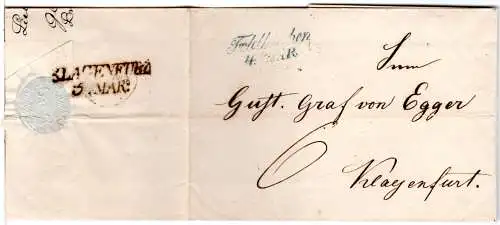 KLAGENFURT
5. MAR:
Feldkirchen
4. MAR.
Gust. Graf von Egger
6
Klagenfurt.